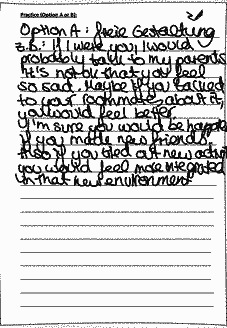 Practice (Option A or B):
Option A: freie Gestaltung
z.B.: If I were you, I would
probably talk to my parents.
It's not ok that you feel
so sad. Maybe if you talked
to your roommates about it,
you would feel better.
I'm sure you would be happier
if you made new friends.
Also if you tried out new activi
you would feel more integrated
in that new environment.